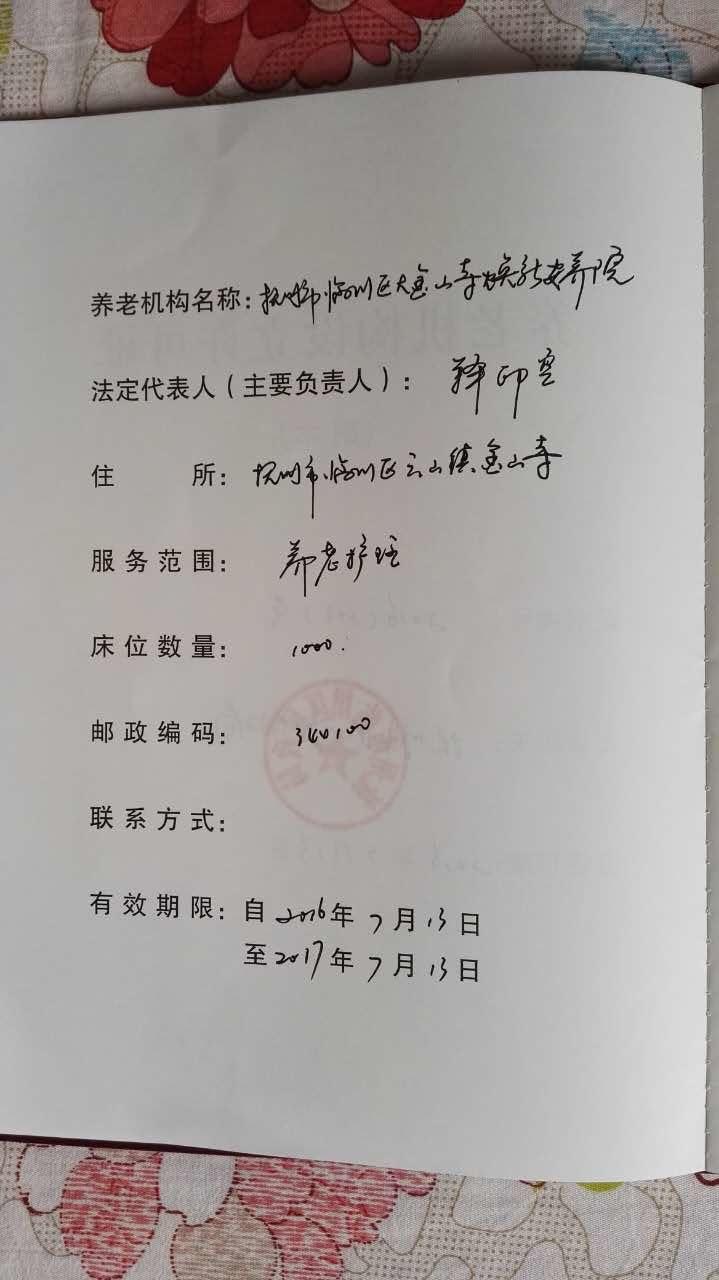 养老机构名称：抚州市临川区大金山寺焕能安养院
法定代表人（主要负责人）： 释印空
住 所： 抚州市临川区云山镇金山寺
服务范围： 养老护理
床位数量： 1000.
邮政编码： 344100
联系方式：
有效期限：自2016年7月13日
至2017年7月13日